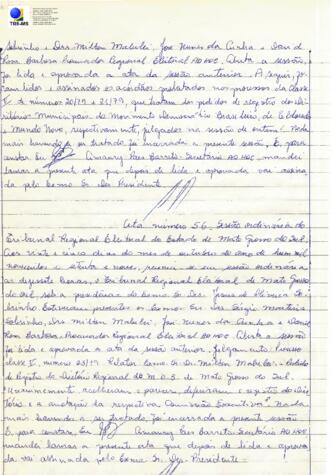 TRE-MS
Sobrinho e Drs. Milton Malulei, José Nunes da Cunha e David
Rosa Barbosa Procurador Regional Eleitoral AD HOC. Aberta a sessão,
foi lida e aprovada a ata da sessão anterior. A seguir, fo-
ram lidos e assinados os acórdãos prolatados nos processos da classe
números 20/79 e 21/79, que tratam dos pedidos de registro dos Di-
retórios Municipais do Movimento Democrático Brasileiro, de Eldorado
Mundo Novo, respectivamente, julgados na sessão de ontem. Nada
mais havendo a ser tratado foi encerrada a presente sessão. E, para
constar Eu Amaury Paes Barreto Secretário AD HOC, mandei
lavrar a presente ata que depois de lida e aprovada vai assina-
da pelo Exmo Sr. Des. Presidente
Ata número 56. Sessão ordinária do
Tribunal Regional Eleitoral do Estado de Mato Grosso do Sul.
Aos vinte e cinco dias do mês de outubro do ano de hum mil
novecentos e setenta e nove, reuniu-se em sessão ordinária
às dezessete horas, o Tribunal Regional Eleitoral de Mato Grosso
do Sul, sob a presidência do Exmo Sr. Des. Jesus de Oliveira So-
brinho. Estiveram presentes os Exmos Srs. Des. Sérgio Martins
Sobrinho, Drs. Milton Malulei, José Nunes da Cunha e David
Rosa Barbosa, Procurador Regional Eleitoral AD HOC. Aberta a sessão
foi lida e aprovada a ata da sessão anterior. Julgamento: Processo
classe I, número 23/79 Relator Exmo Sr. Dr. Milton Malulei. - Pedido
de Registro do Diretório Regional do M.D.B. de Mato Grosso do Sul.
Unanimemente, acolheram o parecer, deferiram o registro do Dire-
tório e a anotação da respectiva Comissão Executiva". Nada
mais havendo a ser tratado foi encerrada a presente sessão
E, para constar, Eu Amaury Paes Barreto Secretário AD HOC
mandei lavrar a presente ata que depois de lida e aprova-
da vai assinada pelo Exmo Sr. Des. Presidente